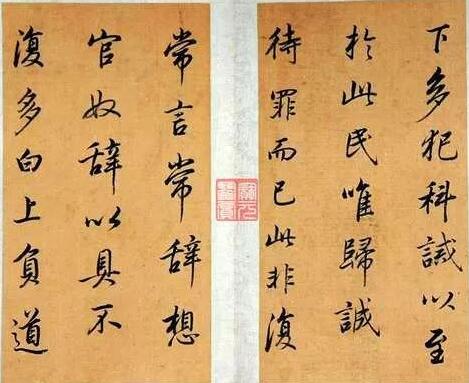 下多犯科誡以至
於此民唯歸誠
待罪而已此非復
常言常辭想
官奴辭以具不
復多白上負道